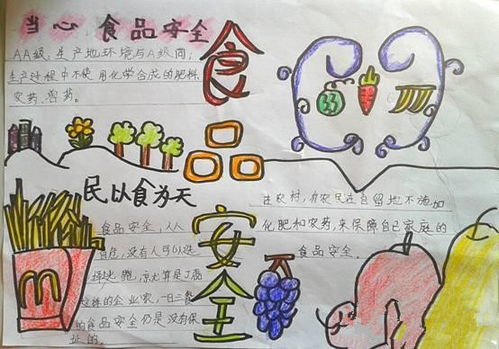 当心 食品安全
AA级：生产地环境与A级同；
生产过程中不使用化学合成的肥料、
农药、兽药。
食品安全
民以食为天
食品安全，人人
自危，没有人可以逃
的食品安全仍是没有保
证的。
在农村，有农民在自留地不施加
化肥和农药，来保障自己家庭的
食品安全。